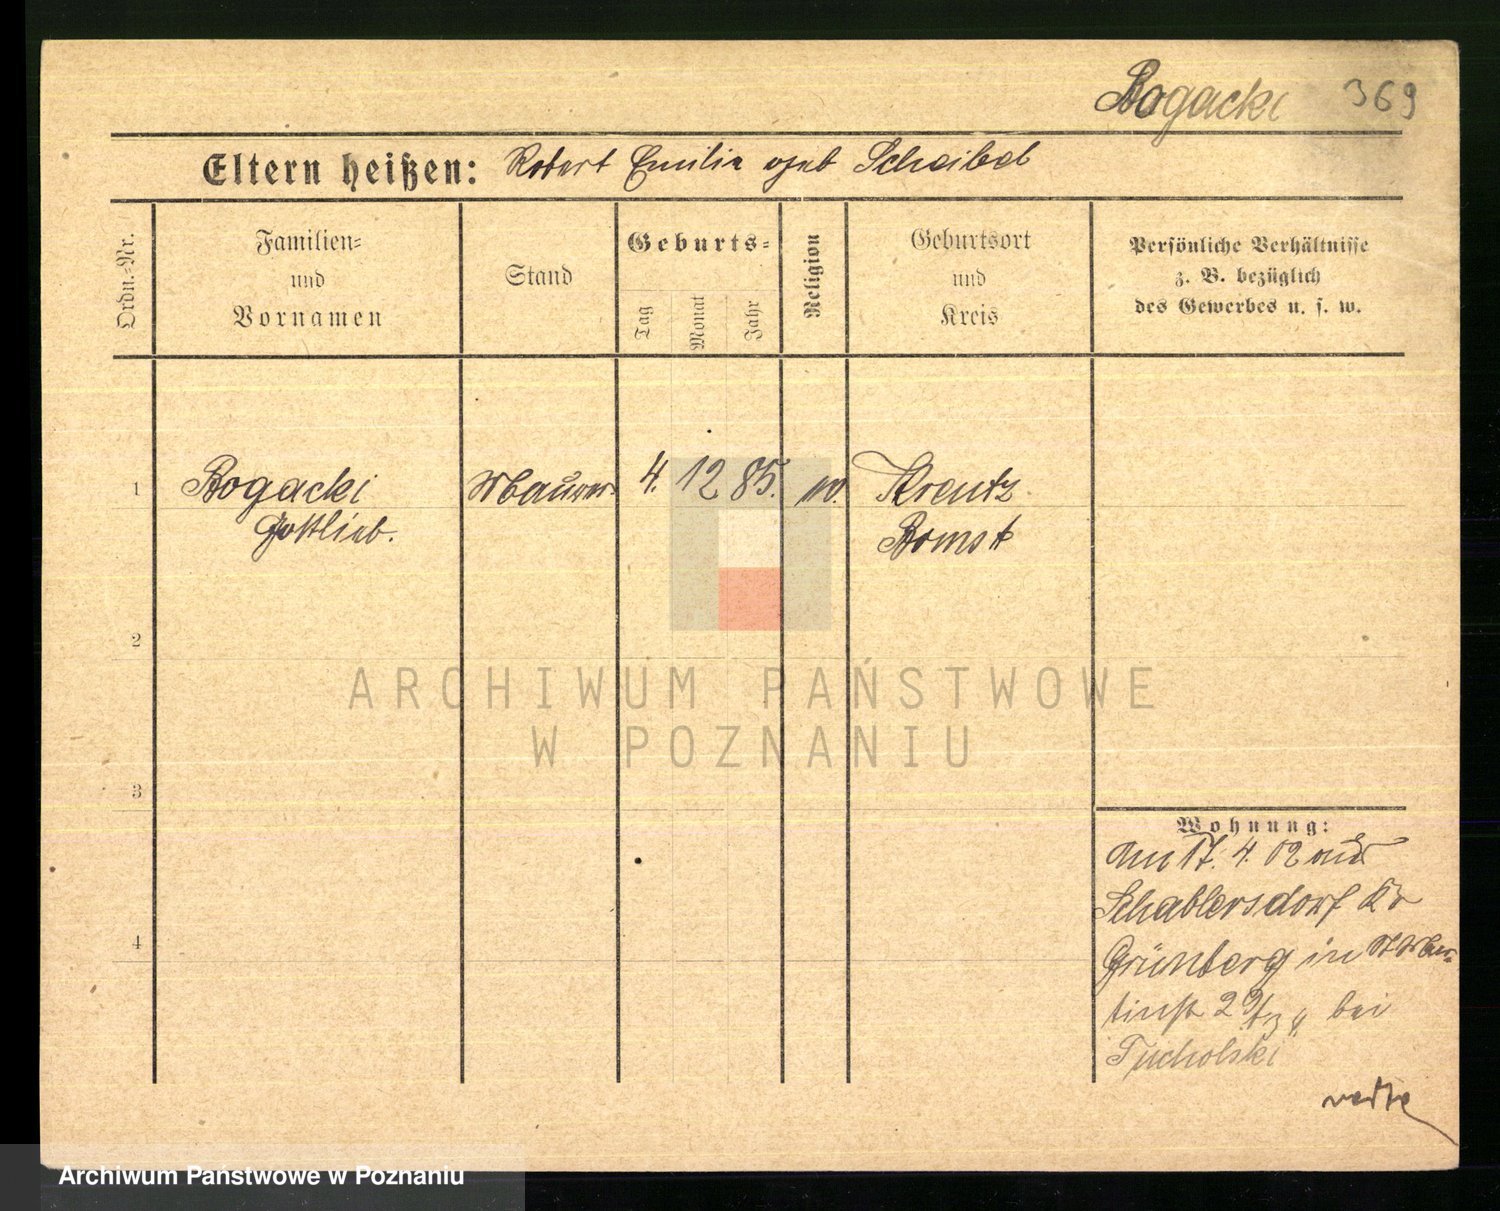 Bogacki 369
Eltern heißen: Robert Emilie geb Scheibel
Ordn.=Nr.
Familien=
und
Vornamen
Stand
Geburts=
Tag
Monat
Jahr
Religion
Geburtsort
und
Kreis
Persönliche Verhältnisse
z. B. bezüglich
des Gewerbes u. s. w.
1 Bogacki Maurer 4. 12 85. Kreutz
Gottlieb. Bomst
2
ARCHIWUM PAŃSTWOWE
W POZNANIU
3
Wohnung:
am 17. 4. 02 aus
Schablersdorf Kr
4
Grünberg in St Mar-
tinstr bei
Tucholski
verte
Archiwum Państwowe w Poznaniu